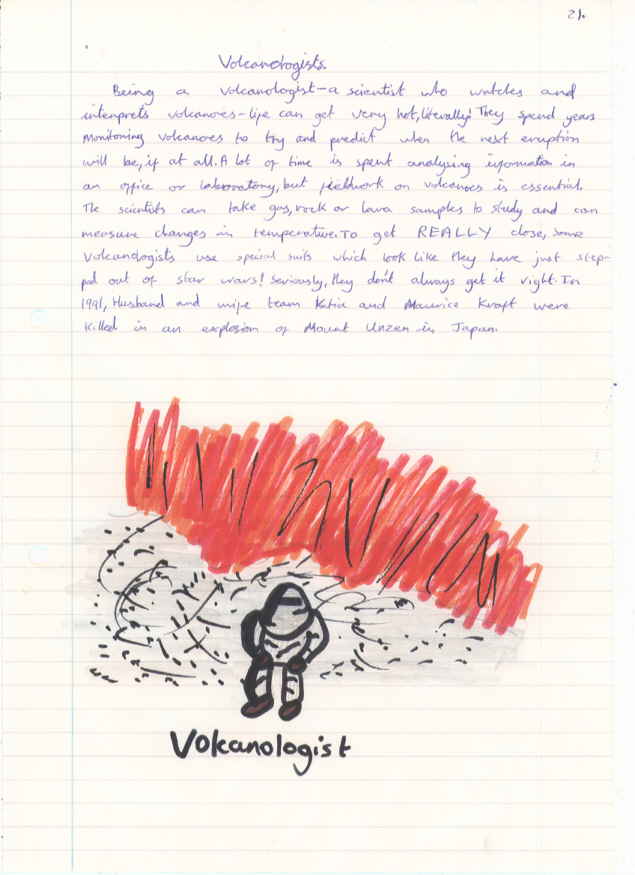 21.
Volcanologists.
Being a volcanologist-a scientist who watches and
interprets volcanoes-life can get very hot,literally! They spend years
monitoring volcanoes to try and predict when the next eruption
will be,if at all.A lot of time is spent analysing information in
an office or laboratory,but fieldwork on volcanoes is essential.
The scientists can take gas,rock or lava samples to study and can
measure changes in temperature.To get REALLY close, some
volcanologists use special suits which look like they have just step-
ped out of star wars! Seriously,they don't always get it right.In
1991, Husband and wife team Katia and Maurice Kraft were
killed in an explosion of Mount Unzen in Japan.
Volkanologist